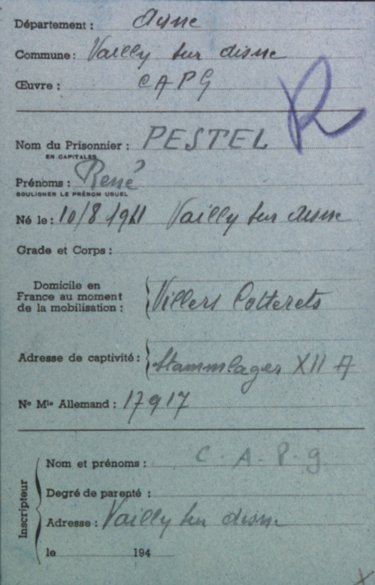 Département : Aisne
Commune : Vailly sur Aisne
Œuvre : CAPG
R
Nom du Prisonnier : PESTEL
EN CAPITALES
Prénoms : René
SOULIGNER LE PRÉNOM USUEL
Né le : 10/8 1911 Vailly sur Aisne
Grade et Corps :
Domicile en
France au moment
de la mobilisation : Villers Cotterets
Adresse de captivité : Stammlager XII A
Nº Mle Allemand : 17917
Inscripteur
Nom et prénoms : C. A. P. g.
Degré de parenté :
Adresse : Vailly sur Aisne
le 194